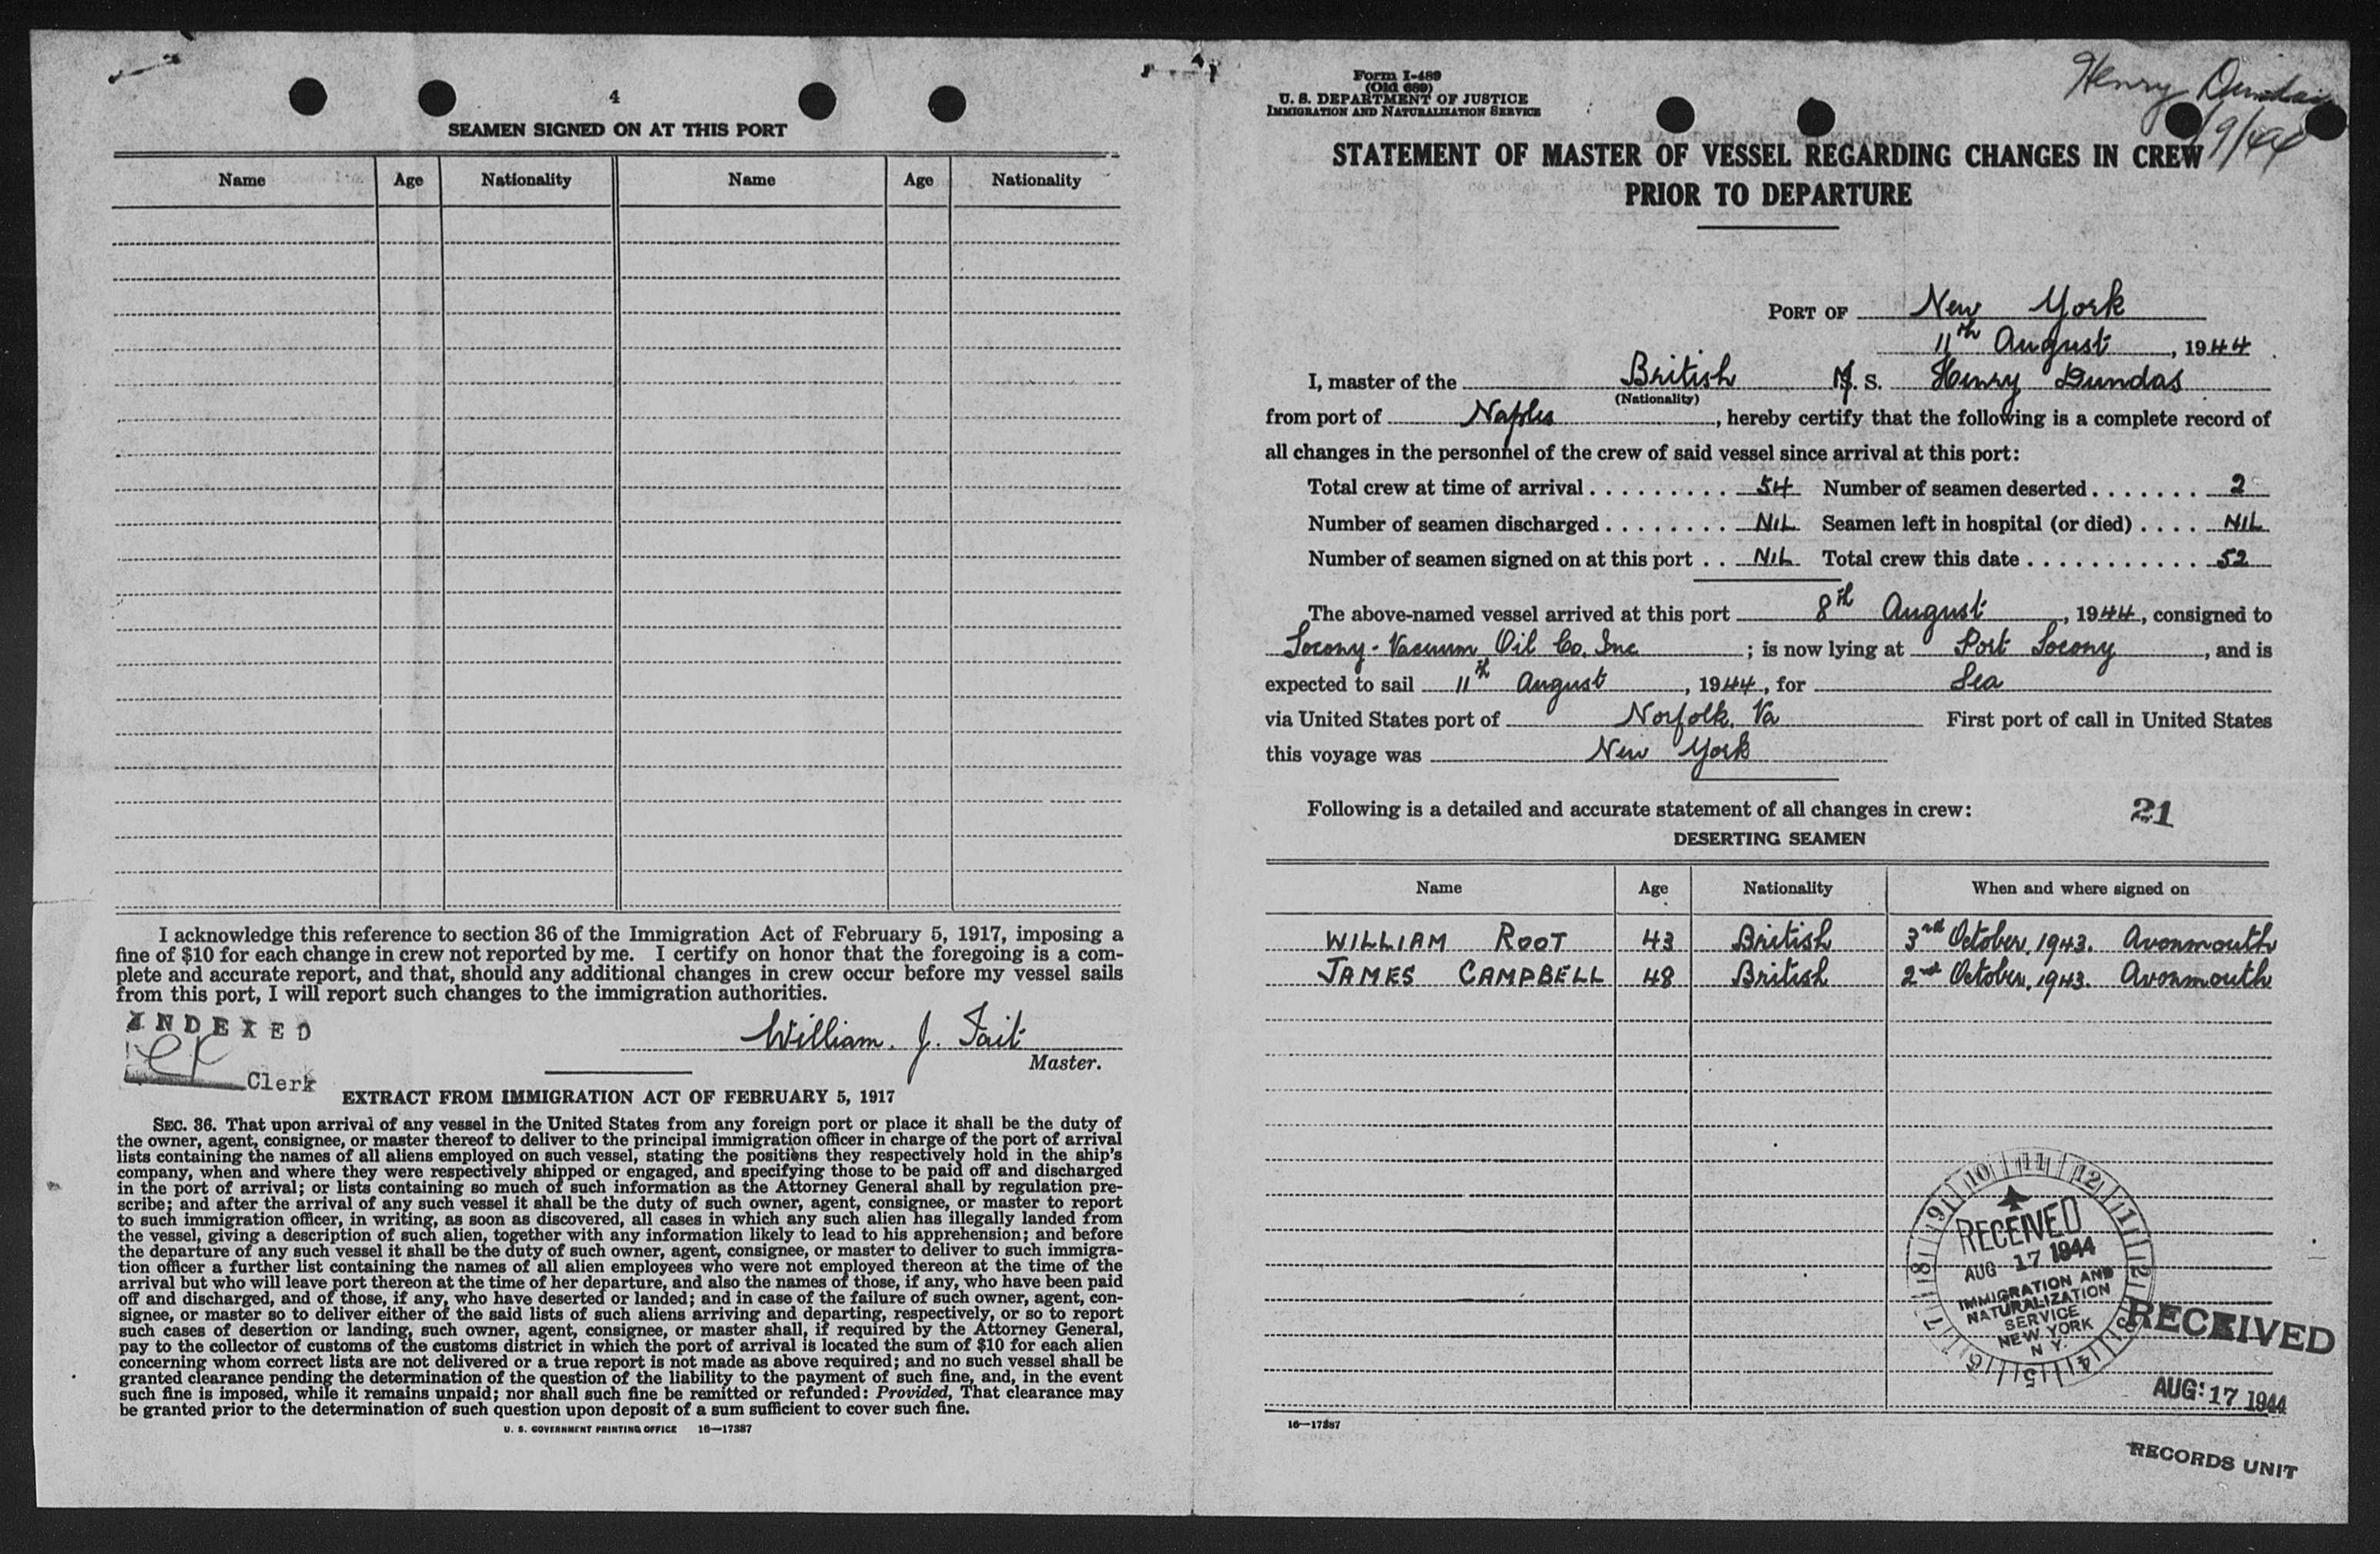 4
SEAMEN SIGNED ON AT THIS PORT
Name Age Nationality Name Age Nationality
I acknowledge this reference to section 36 of the Immigration Act of February 5, 1917, imposing a
fine of $10 for each change in crew not reported by me. I certify on honor that the foregoing is a com-
plete and accurate report, and that, should any additional changes in crew occur before my vessel sails
from this port, I will report such changes to the immigration authorities.
INDEXED
Clerk
William. J. Tait
Master.
EXTRACT FROM IMMIGRATION ACT OF FEBRUARY 5, 1917
SEC. 36. That upon arrival of any vessel in the United States from any foreign port or place it shall be the duty of
the owner, agent, consignee, or master thereof to deliver to the principal immigration officer in charge of the port of arrival
lists containing the names of all aliens employed on such vessel, stating the positions they respectively hold in the ship's
company, when and where they were respectively shipped or engaged, and specifying those to be paid off and discharged
in the port of arrival; or lists containing so much of such information as the Attorney General shall by regulation pre-
scribe; and after the arrival of any such vessel it shall be the duty of such owner, agent, consignee, or master to report
to such immigration officer, in writing, as soon as discovered, all cases in which any such alien has illegally landed from
the vessel, giving a description of such alien, together with any information likely to lead to his apprehension; and before
the departure of any such vessel it shall be the duty of such owner, agent, consignee, or master to deliver to such immigra-
tion officer a further list containing the names of all alien employees who were not employed thereon at the time of the
arrival but who will leave port thereon at the time of her departure, and also the names of those, if any, who have been paid
off and discharged, and of those, if any, who have deserted or landed; and in case of the failure of such owner, agent, con-
signee, or master so to deliver either of the said lists of such aliens arriving and departing, respectively, or so to report
such cases of desertion or landing, such owner, agent, consignee, or master shall, if required by the Attorney General,
pay to the collector of customs of the customs district in which the port of arrival is located the sum of $10 for each alien
concerning whom correct lists are not delivered or a true report is not made as above required; and no such vessel shall be
granted clearance pending the determination of the question of the liability to the payment of such fine, and, in the event
such fine is imposed, while it remains unpaid; nor shall such fine be remitted or refunded: Provided, That clearance may
be granted prior to the determination of such question upon deposit of a sum sufficient to cover such fine.
U. S. GOVERNMENT PRINTING OFFICE 16—17387
Form I-489
(Old 689)
U. S. DEPARTMENT OF JUSTICE
IMMIGRATION AND NATURALIZATION SERVICE
Henry Dundas
STATEMENT OF MASTER OF VESSEL REGARDING CHANGES IN CREW
PRIOR TO DEPARTURE
PORT OF New York
11th August, 1944
I, master of the British M. S. Henry Dundas
(Nationality)
from port of Naples, hereby certify that the following is a complete record of
all changes in the personnel of the crew of said vessel since arrival at this port:
Total crew at time of arrival . . . . . . . . . . 54 Number of seamen deserted . . . . . . . 2
Number of seamen discharged . . . . . . . . NIL Seamen left in hospital (or died) . . . . NIL
Number of seamen signed on at this port . . NIL Total crew this date . . . . . . . . . . . . 52
The above-named vessel arrived at this port 8th August, 1944, consigned to
Socony-Vacuum Oil Co. Inc; is now lying at Port Socony, and is
expected to sail 11th August, 1944, for Sea
via United States port of Norfolk, Va First port of call in United States
this voyage was New York
Following is a detailed and accurate statement of all changes in crew: 21
DESERTING SEAMEN
Name Age Nationality When and where signed on
WILLIAM ROOT 43 British 3rd October, 1943. Avonmouth
JAMES CAMPBELL 48 British 2nd October, 1943. Avonmouth
9 10 11 12 1 2 3 4 5 6 7 8
RECEIVED
AUG 17 1944
IMMIGRATION AND
NATURALIZATION
SERVICE
NEW YORK
N Y.
RECEIVED
AUG: 17 1944
RECORDS UNIT
16—17387